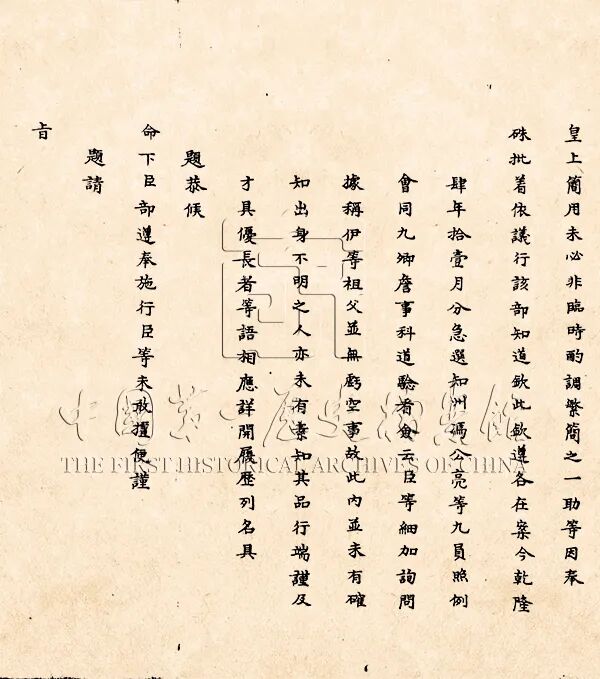 皇上簡用未必非臨時酌調繁簡之一助等因奉
硃批着依議行該部知道欽此欽遵各在案今乾隆
肆年拾壹月分急選知州馮公亮等九員照例
會同九卿詹事科道驗看僉云臣等細加詢問
據稱伊等祖父並無虧空事故此內並未有確
知出身不明之人亦未有素知其品行端謹及
才具優長者等語相應詳開履歷列名具
題恭候
命下臣部遵奉施行臣等未敢擅便謹
題請
旨
中国第一历史档案馆
THE FIRST HISTORICAL ARCHIVES OF CHINA